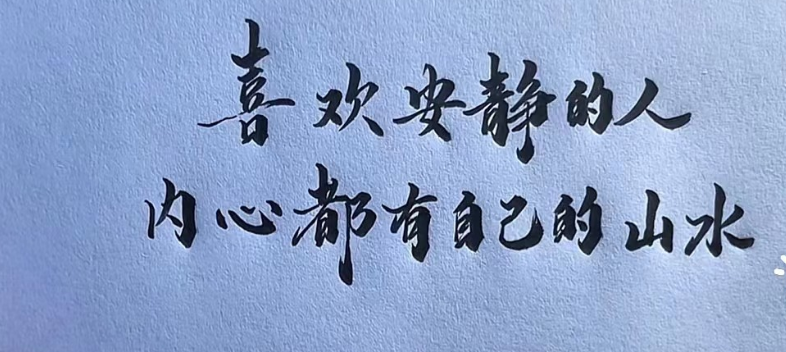 喜欢安静的人
内心都有自己的山水